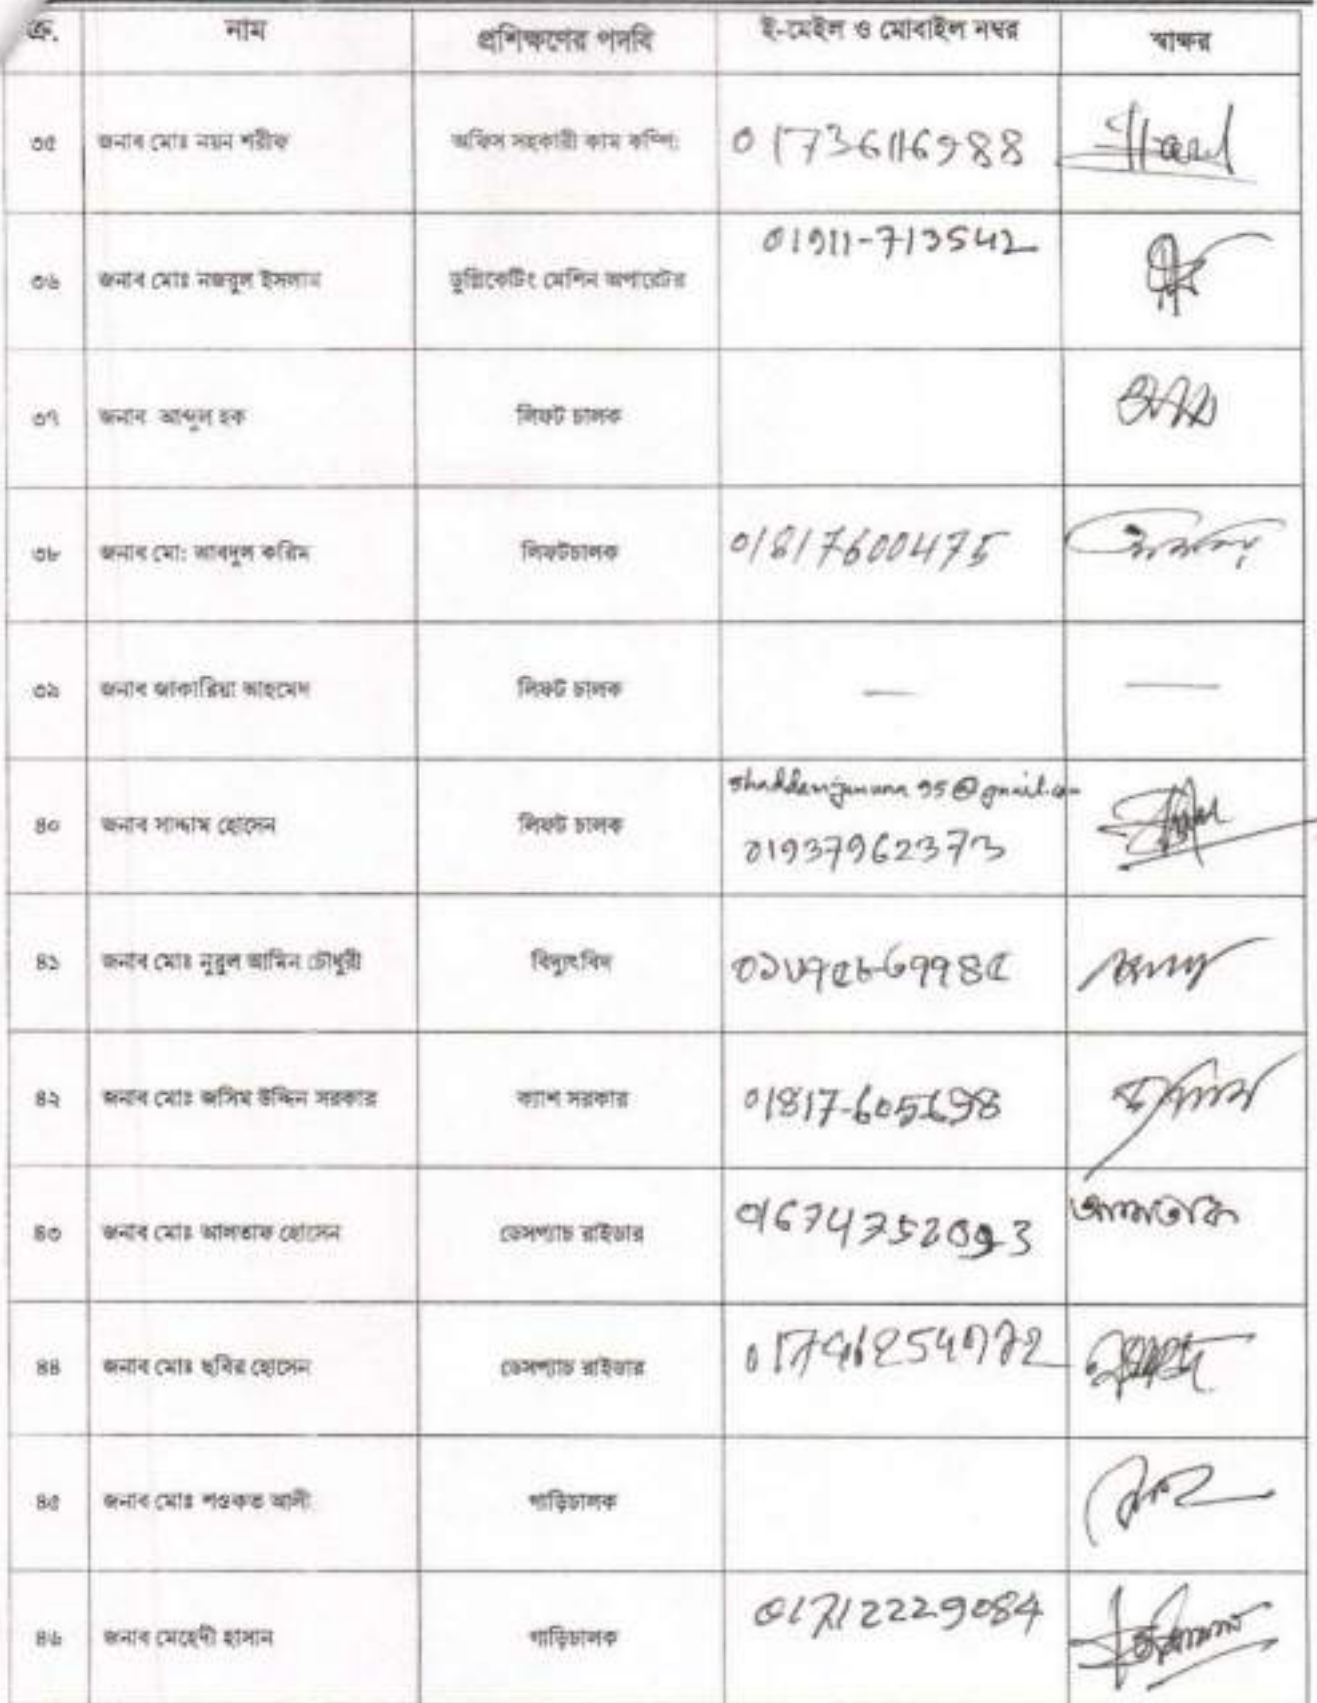 ক্র. নাম প্রশিক্ষণের পদবি ই-মেইল ও মোবাইল নম্বর স্বাক্ষর
৩৫ জনাব মোঃ নয়ন শরীফ অফিস সহকারী কাম কম্পি: 01736116988
৩৬ জনাব মোঃ নজরুল ইসলাম ডুপ্লিকেটিং মেশিন অপারেটর 01911-713542
৩৭ জনাব আব্দুল হক লিফট চালক
৩৮ জনাব মো: আবদুল করিম লিফটচালক 01817600475
৩৯ জনাব জাকারিয়া আহমেদ লিফট চালক — —
৪০ জনাব সাদ্দাম হোসেন লিফট চালক 01937962373
৪১ জনাব মোঃ নুরুল আমিন চৌধুরী বিদ্যুৎবিদ
৪২ জনাব মোঃ জসিম উদ্দিন সরকার ক্যাশ সরকার 01817-605698
৪৩ জনাব মোঃ আলতাফ হোসেন ডেসপ্যাচ রাইডার 01674752093 আলতাফ
৪৪ জনাব মোঃ ছবির হোসেন ডেসপ্যাচ রাইডার
৪৫ জনাব মোঃ শওকত আলী গাড়িচালক
৪৬ জনাব মেহেদী হাসান গাড়িচালক 01712229084